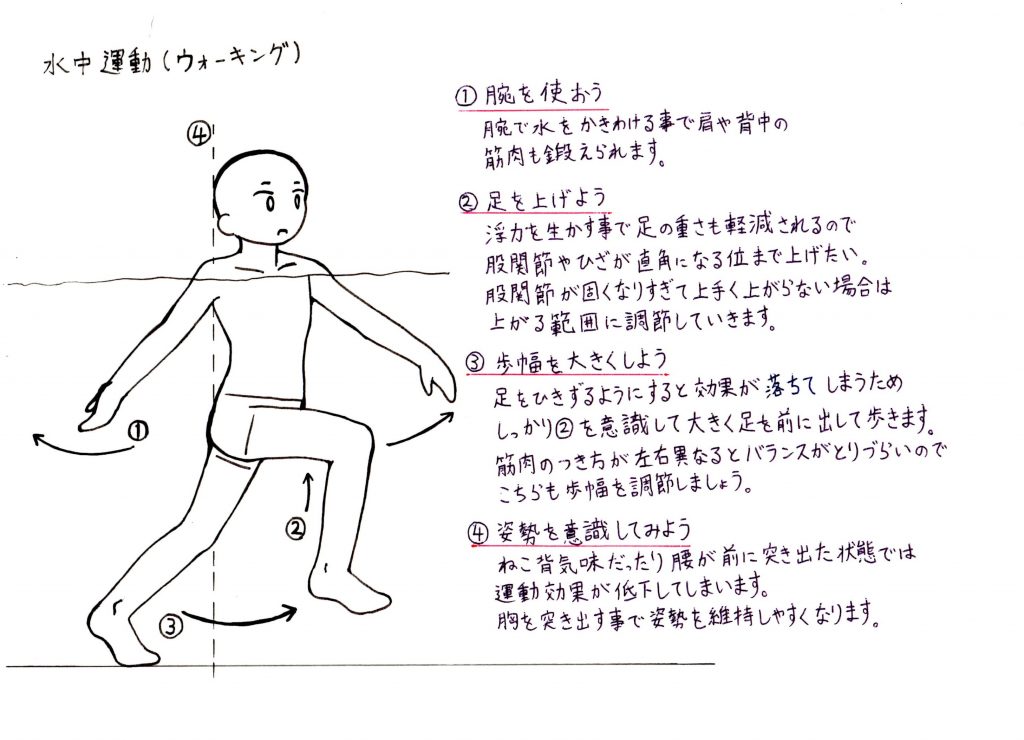 水中運動(ウォーキング)
④
①
②
③
① 腕を使おう
腕で水をかきわける事で肩や背中の
筋肉も鍛えられます。
② 足を上げよう
浮力を生かす事で足の重さも軽減されるので
股関節やひざが直角になる位まで上げたい。
股関節が固くなりすぎて上手く上がらない場合は
上がる範囲に調節していきます。
③ 歩幅を大きくしよう
足をひきずるようにすると効果が落ちてしまうため
しっかり②を意識して大きく足を前に出して歩きます。
筋肉のつき方が左右異なるとバランスがとりづらいので
こちらも歩幅を調節しましょう。
④ 姿勢を意識してみよう
ねこ背気味だったり腰が前に突き出た状態では
運動効果が低下してしまいます。
胸を突き出す事で姿勢を維持しやすくなります。